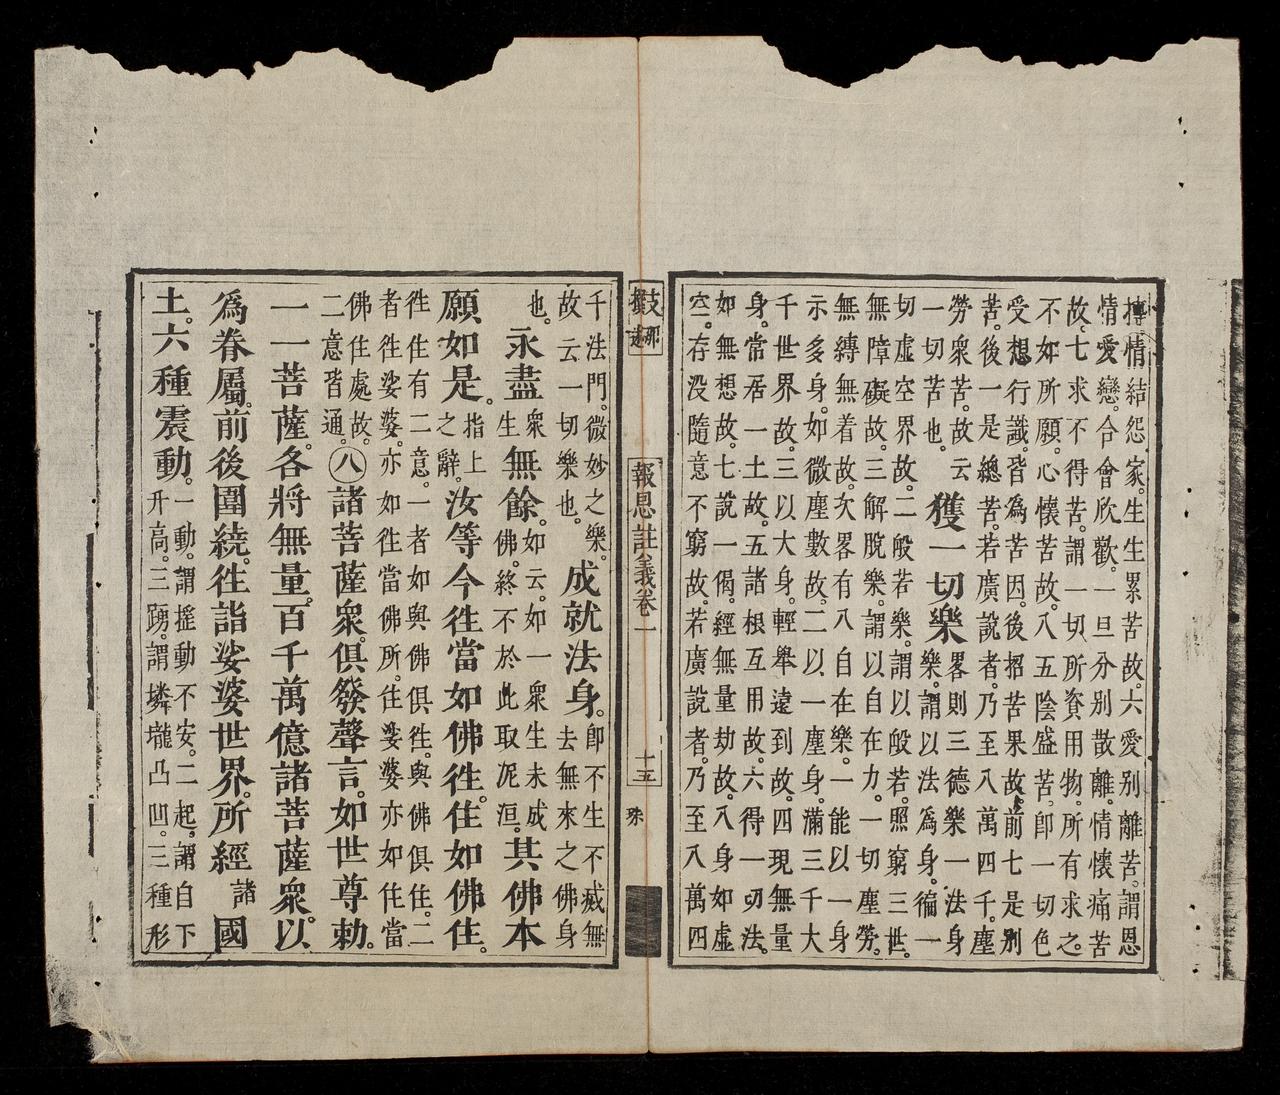 摶情結怨家。生生累苦故。六愛別離苦。謂恩
情愛戀。合會欣歡。一旦分別散離。情懷痛苦
故。七求不得苦。謂一切所資用物。所有求之
不如所願。心懷苦故。八五陰盛苦。卽一切色
受想行識。皆為苦因。後招苦果故。前七是別
苦。後一是總苦。若廣說者。乃至八萬四千。塵
勞衆苦。故云一切苦也。獲一切樂畧則三德樂。一法身樂。謂以法為身。徧一
切虛空界故。二般若樂。謂以般若。照窮三世。
無障礙故。三解脫樂。謂以自在力。一切塵勞。
無縛無着故。次畧有八自在樂。一能以一身
示多身。如微塵數故。二以一塵身。滿三千大
千世界故。三以大身。輕舉遠到故。四現無量
身。常居一土故。五諸根互用故。六得一切法。
如無想故。七說一偈。經無量劫故。八身如虛
空。存没隨意不窮故。若廣說者。乃至八萬四
報恩註義卷一
十五
千法門。微妙之樂。故云一切樂也。成就法身。卽不生不滅。無去無來之佛身
也。永盡衆生無餘。如云。如一衆生未成佛。終不於此取泥洹。其佛本
願如是。指上之辭。汝等今徃當如佛徃。住如佛住。
徃住有二意。一者如與佛俱徃。與佛俱住。二
者徃娑婆。亦如徃當佛所。住娑婆亦如住當
佛住處故。二意皆通。八諸菩薩衆。俱發聲言。如世尊勅。
一一菩薩。各將無量。百千萬億諸菩薩衆。以
為眷屬。前後圍繞。徃詣娑婆世界。所經諸國
土。六種震動。一動。謂搖動不安。二起。謂自下升高。三踴。謂壔壠凸凹。三種形